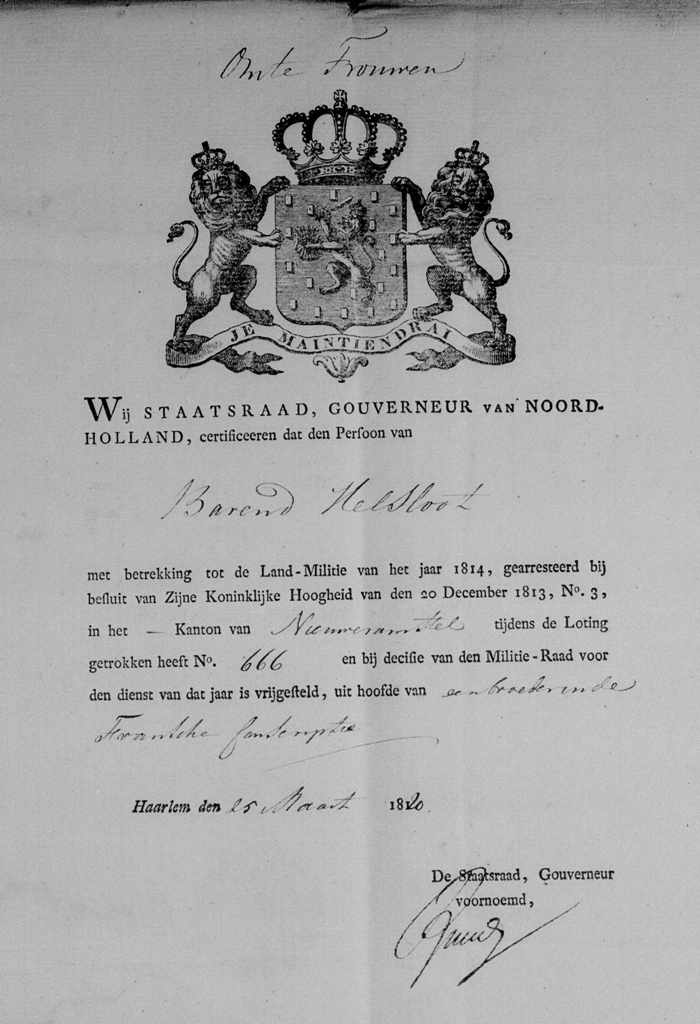 Omte Trouwen
JE MAINTIENDRAI
Wij STAATSRAAD, GOUVERNEUR VAN NOORD-
HOLLAND, certificeeren dat den Persoon van
Barend Helsloot
met betrekking tot de Land-Militie van het jaar 1814, gearresteerd bij
besluit van Zijne Koninklijke Hoogheid van den 20 December 1813, No. 3,
in het — Kanton van Nieuweramstel tijdens de Loting
getrokken heeft No. 666 en bij decisie van den Militie-Raad voor
den dienst van dat jaar is vrijgesteld, uit hoofde van een broeder in de
Fransche Conscriptie
Haarlem den 25 Maart 1820.
De Staatsraad, Gouverneur
voornoemd,